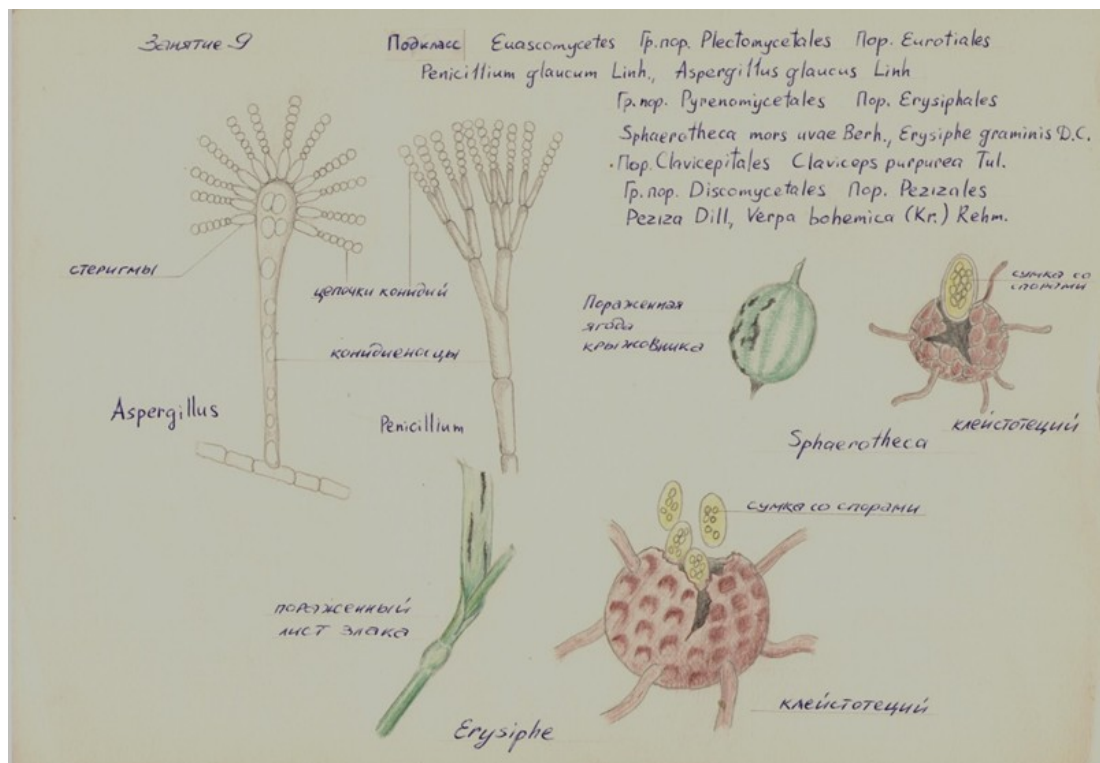 Занятие 9
Подкласс Euascomycetes Гр.пор. Plectomycetales Пор. Eurotiales
Penicillium glaucum Linh., Aspergillus glaucus Linh
Гр.пор. Pyrenomycetales Пор. Erysiphales
Sphaerotheca mors uvae Berh., Erysiphe graminis D.C.
Пор. Clavicepitales Claviceps purpurea Tul.
Гр.пор. Discomycetales Пор. Pezizales
Peziza Dill, Verpa bohemica (Kr.) Rehm.
стеригмы
цепочки конидий
конидиеносцы
Aspergillus
Penicillium
Пораженная
ягода
крыжовника
сумка со
спорами
клейстотеций
Sphaerotheca
сумка со спорами
пораженный
лист злака
клейстотеций
Erysiphe